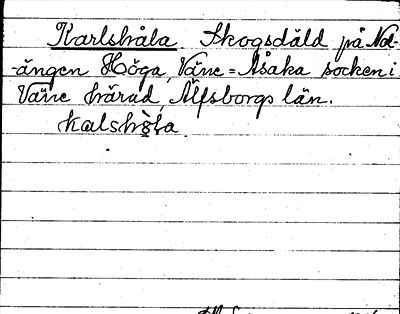 Karlshåla Skogsdäld på Nol-
-ängen Höga, Väne=Åsaka socken i
Väne härad, Älfsborgs län.
kalshò̀la